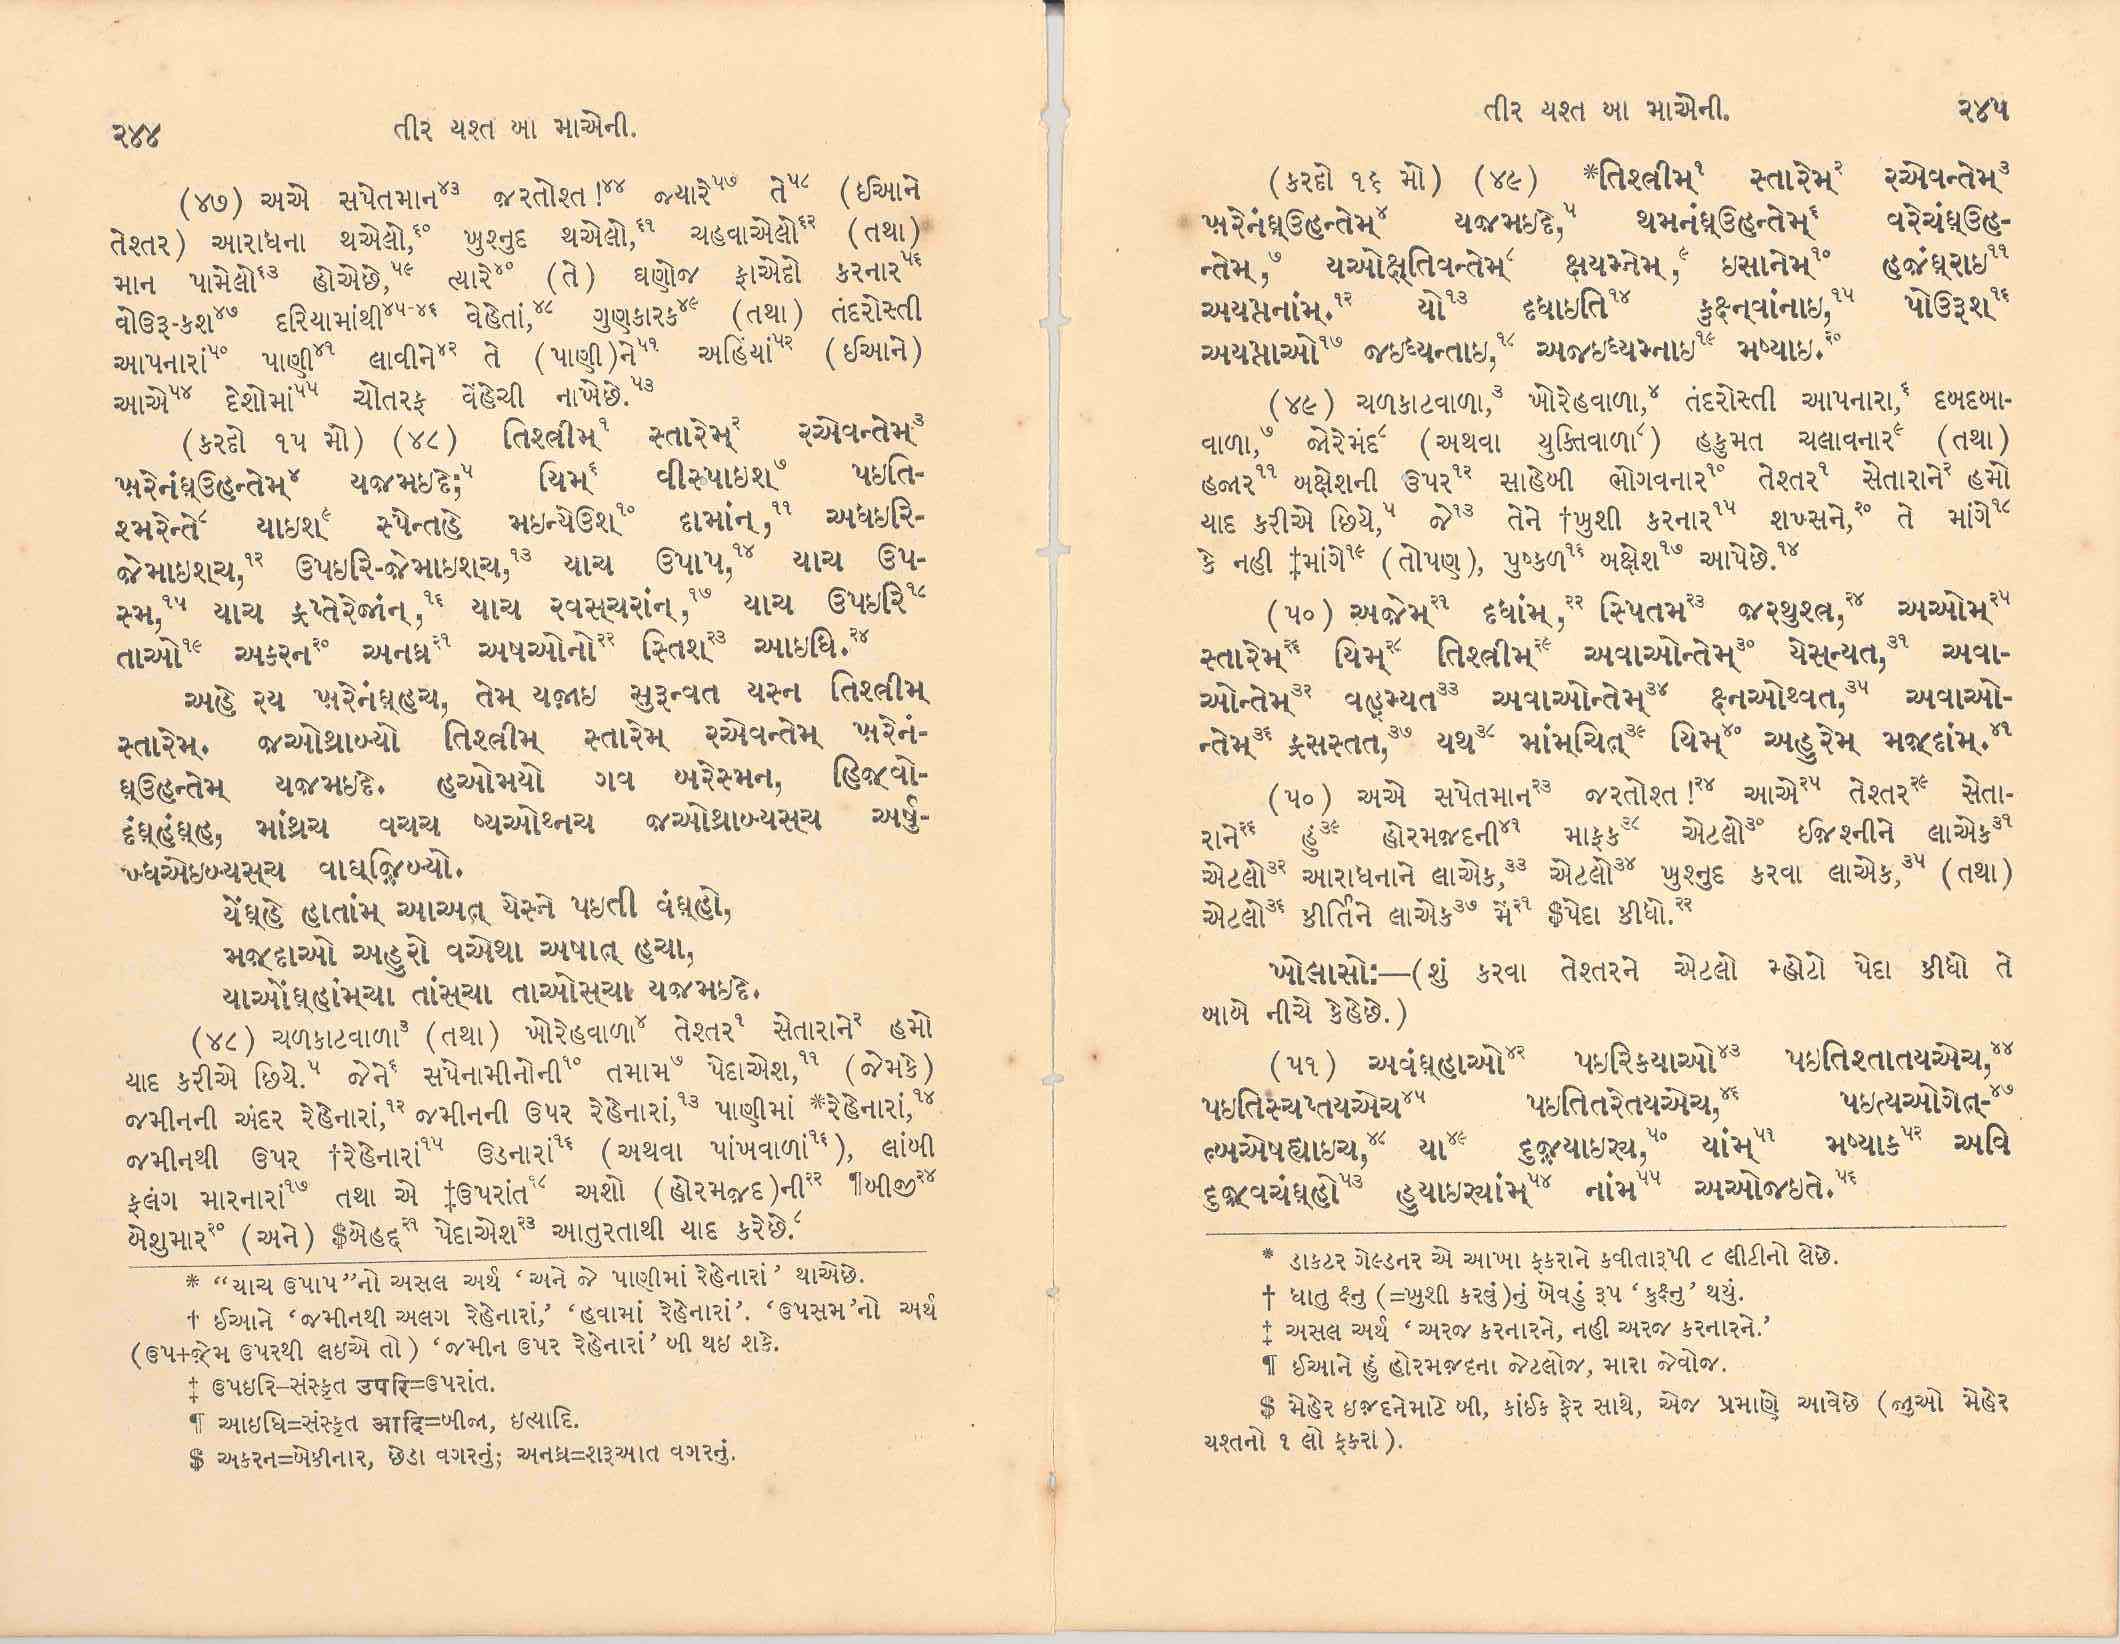 ૨૪૪
તીર યશ્ત બા માએની.
(૪૭) અએ સપેતમાન૪૩ જરતોશ્ત!૪૪ જ્યારે૫૭ તે૫૮ (ઈઆને
તેશ્તર) આરાધના થએલો,૬૦ ખુશ્નુદ થએલો,૬૧ ચહવાએલો૬૨ (તથા)
માન પામેલો૬૩ હોએછે,૫૯ ત્યારે૪૦ (તે) ઘણોજ ફાએદો કરનાર૫૬
વોઉરૂ-કશ૪૭ દરિયામાંથી૪૫-૪૬ વેહેતાં,૪૮ ગુણકારક૪૯ (તથા) તંદરોસ્તી
આપનારાં૫૦ પાણી૪૧ લાવીને૪૨ તે (પાણી)ને૫૧ અહિંયાં૫૨ (ઈઆને)
આએ૫૪ દેશોમાં૫૫ ચોતરફ વેંહેચી નાખેછે.૫૩
(કરદો ૧૫ મો) (૪૮) તિશ્ત્રીમ્૧ સ્તારેમ્૨ રએવન્તેમ્૩
ખ઼રેનંઘ઼્ઉહન્તેમ્૪ યજ઼મઇદે;૫ યિમ્૬ વીસ્પાઇશ્૭ પઇતિ-
શ્મરેન્તે૮ યાઇશ્૯ સ્પેન્તહે મઇન્યેઉશ્૧૦ દામાંન્,૧૧ અધઇરિ-
જ઼ેમાઇશ્ચ,૧૨ ઉપઇરિ-જ઼ેમાઇશ્ચ,૧૩ યાચ ઉપાપ,૧૪ યાચ ઉપ-
સ્મ,૧૫ યાચ ફ્રપ્તેરેજાંન્,૧૬ યાચ રવસ્ચરાંન્,૧૭ યાચ ઉપઇરિ૧૮
તાઓ૧૯ અકરન૨૦ અનઘ્ર૨૧ અષઓનો૨૨ સ્તિશ્૨૩ આઇધિ.૨૪
અહે રય ખ઼રેનંઘ઼્હચ, તેમ્ યજ઼ાઇ સુરૂન્વત યસ્ન તિશ્ત્રીમ્
સ્તારેમ્. જ઼ઓથ્રાબ્યો તિશ્ત્રીમ્ સ્તારેમ્ રએવન્તેમ્ ખ઼રેનં-
ઘ઼્ઉહન્તેમ્ યજ઼મઇદે. હઓમયો ગવ બરેસ્મન, હિજ઼્વો-
દંઘ઼્હંઘ઼્હ, માંથ્રચ વચચ ષ્યઓથ્નચ જ઼ઓથ્રાબ્યસ્ચ અર્ષુ-
ખ્ધએઇબ્યસ્ચ વાઘ્જ઼િબ્યો.
યેંઘ઼્હે હાતાંમ્ આઅત્ યેસ્ને પઇતી વંઘ઼્હો,
મજ઼્દાઓ અહુરો વએથા અષાત્ હચા,
યાઓંઘ઼્હાંમ્ચા તાંસ્ચા તાઓસ્ચા યજ઼મઇદે.
(૪૮) ચળકાટવાળા૩ (તથા) ખોરેહવાળા૪ તેશ્તર૧ સેતારાને૨ હમો
યાદ કરીએ છિયે.૫ જેને૬ સપેનામીનોની૧૦ તમામ૭ પેદાએશ,૧૧ (જેમકે)
જમીનની અંદર રેહેનારાં,૧૨ જમીનની ઉપર રેહેનારાં,૧૩ પાણીમાં *રેહેનારાં,૧૪
જમીનથી ઉપર †રેહેનારાં૧૫ ઉડનારાં૧૬ (અથવા પાંખવાળાં૧૬), લાંબી
ફલંગ મારનારાં૧૭ તથા એ ‡ઉપરાંત૧૮ અશો (હોરમજ઼દ)ની૨૨ ¶બીજી૨૪
બેશુમાર૨૦ (અને) $બેહદ્દ૨૧ પેદાએશ૨૩ આતુરતાથી યાદ કરેછે.૮
* “યાચ ઉપાપ”નો અસલ અર્થ ‘અને જે પાણીમાં રેહેનારાં’ થાએછે.
† ઈઆને ‘જમીનથી અલગ રેહેનારાં,’ ‘હવામાં રેહેનારાં’. ‘ઉપસમ’નો અર્થ
(ઉપ+જ઼ેમ ઉપરથી લઇએ તો) ‘જમીન ઉપર રેહેનારાં’ બી થઇ શકે.
‡ ઉપઇરિ–સંસ્કૃત उपरि=ઉપરાંત.
¶ આઇધિ=સંસ્કૃત आदि=બીજા, ઇત્યાદિ.
$ અકરન=બેકીનાર, છેડા વગરનું; અનઘ્ર=શરૂઆત વગરનું.
તીર યશ્ત બા માએની.
૨૪૫
(કરદો ૧૬ મો) (૪૯) *તિશ્ત્રીમ્૧ સ્તારેમ્૨ રએવન્તેમ્૩
ખ઼રેનંઘ઼્ઉહન્તેમ્૪ યજ઼મઇદે,૫ થમનંઘ઼્ઉહન્તેમ્૬ વરેચંઘ઼્ઉહ-
ન્તેમ્,૭ યઓક્ષ્તિવન્તેમ્૮ ક્ષયમ્નેમ્,૯ ઇસાનેમ્૧૦ હજ઼ંઘ઼્રાઇ૧૧
અયપ્તનાંમ્.૧૨ યો૧૩ દધાઇતિ૧૪ કુક્ષ્ન્વાંનાઇ,૧૫ પોઉરૂશ્૧૬
અયપ્તાઓ૧૭ જઇધ્યન્તાઇ,૧૮ અજઇધ્યમ્નાઇ૧૯ મષ્યાઇ.૨૦
(૪૯) ચળકાટવાળા,૩ ખોરેહવાળા,૪ તંદરોસ્તી આપનારા,૬ દબદબા-
વાળા,૭ જોરેમંદ૮ (અથવા યુક્તિવાળા૮) હકુમત ચલાવનાર૯ (તથા)
હજાર૧૧ બક્ષેશની ઉપર૧૨ સાહેબી ભોગવનાર૧૦ તેશ્તર૧ સેતારાને૨ હમો
યાદ કરીએ છિયે,૫ જે૧૩ તેને †ખુશી કરનાર૧૫ શખ્સને,૨૦ તે માંગે૧૮
કે નહી ‡માંગે૧૯ (તોપણ), પુષ્કળ૧૬ બક્ષેશ૧૭ આપેછે.૧૪
(૫૦) અજ઼ેમ્૨૧ દધાંમ્,૨૨ સ્પિતમ૨૩ જ઼રથુશ્ત્ર,૨૪ અઓમ્૨૫
સ્તારેમ્૨૬ યિમ્૨૮ તિશ્ત્રીમ્૨૯ અવાઓન્તેમ્૩૦ યેસ્ન્યત,૩૧ અવા-
ઓન્તેમ્૩૨ વહ્મ્યત૩૩ અવાઓન્તેમ્૩૪ ક્ષ્નઓથ્વત,૩૫ અવાઓ-
ન્તેમ્૩૬ ફ્રસસ્તત,૩૭ યથ૩૮ માંમ્ચિત્૩૯ યિમ્૪૦ અહુરેમ્ મજ઼્દાંમ્.૪૧
(૫૦) અએ સપેતમાન૨૩ જરતોશ્ત!૨૪ આએ૨૫ તેશ્તર૨૯ સેતા-
રાને૨૬ હું૩૯ હોરમજ઼દની૪૧ માફક૩૮ એટલો૩૦ ઈજ઼શ્નીને લાએક૩૧
એટલો૩૨ આરાધનાને લાએક,૩૩ એટલો૩૪ ખુશ્નુદ કરવા લાએક,૩૫ (તથા)
એટલો૩૬ કીર્તિને લાએક૩૭ મેં૨૧ $પેદા કીધો.૨૨
ખોલાસોઃ—(શું કરવા તેશ્તરને એટલો મ્હોટો પેદા કીધો તે
બાબે નીચે કેહેછે.)
(૫૧) અવંઘ઼્હાઓ૪૨ પઇરિકયાઓ૪૩ પઇતિશ્તાતયએચ,૪૪
પઇતિસ્ચપ્તયએચ૪૫ પઇતિતરેતયએચ,૪૬ પઇત્યઓગેત્-૪૭
ત્બએષહ્યાઇચ,૪૮ યા૪૯ દુજ઼્યાઇર્ય,૫૦ યાંમ્૫૧ મષ્યાક૫૨ અવિ
દુજ઼્વચંઘ઼્હો૫૩ હુયાઇર્યાંમ્૫૪ નાંમ૫૫ અઓજઇતે.૫૬
* ડાકટર ગેલ્ડનર એ આખા ફકરાને કવીતારૂપી ૮ લીટીનો લેછે.
† ધાતુ ક્ષ્નુ (=ખુશી કરવું)નું બેવડું રૂપ ‘કુક્ષ્નુ’ થયું.
‡ અસલ અર્થ ‘અરજ કરનારને, નહી અરજ કરનારને.’
¶ ઈઆને હું હોરમજ઼દના જેટલોજ, મારા જેવોજ.
$ મેહેર ઇજ઼દનેમાટે બી, કાંઈક ફેર સાથે, એજ પ્રમાણે આવેછે (જુઓ મેહેર
યશ્તનો ૧ લો ફકરો).